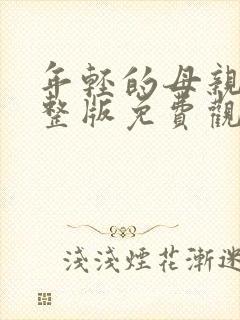 年輕的母親
整版免費觀
淺淺煙花漸迷